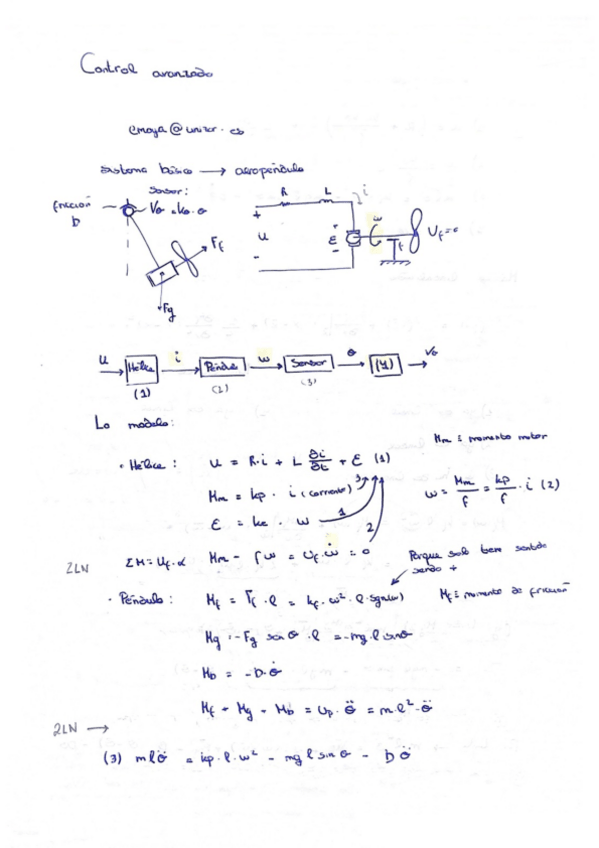 Control avanzado
sistema básico → aeropéndulo
Sensor:
fricción
b
Vθ = kθ·θ
Ff
Fg
R
L
i
+
u
-
+
ε
-
ω
f
Uf=0
u
Hélice
i
Péndulo
ω
Sensor
θ
(4)
Vθ
(1)
(2)
(3)
Lo modelo:
Mm ≡ momento motor
• Hélice: u = R·i + L ∂i/∂t + ε (1)
Mm = kp · i (corriente)
3
ω = Mm/f = kp/f · i (2)
ε = ke · ω
1
2
2LN
ΣM = Uf·α Mm - fω = Uf·ω̇ = 0
Porque solo tiene sentido
siendo +
• Péndulo: Mf = Ff · l = kf·ω²·l·sgn(ω)
Mf ≡ momento de fricción
Mg = -Fg sin θ · l = -mg·l sinθ
Mb = -D·θ̇
Mf + Mg + Mb = Up·θ̈ = m·l²·θ̈
2LN →
(3) mlθ̈ = kp·l·ω² - mg l sin θ - Dθ̇